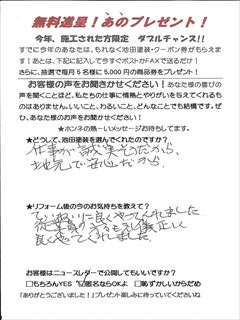 無料進呈！あのプレゼント！
今年、施工された方限定　ダブルチャンス!!
すでに今年のあなたは、もれなく池田塗装・クーポン券がもらえま
す！あとは、下記に記入して今すぐポストかFAXで送るだけ！
さらに、抽選で毎月5名様に5,000円の商品券をプレゼント！
お客様の声をお聞かせください！あなた様の喜びの
声を聞くことほど、私たちの仕事に情熱とやりがいを与えてくれるも
のはありません。いいこと、わるいこと、どんなことでも結構です。ぜ
ひ、あなた様のお声をお聞かせください！
★ホンネの熱ーいメッセージお待ちしてます。
★どうして、池田塗装を選んでくれたのですか？
仕事が誠実そうだから、
地元で安心だから、
★リフォーム後の今のお気持ちを教えて？
ていねいに良くやってくれました。
従業員の方々も礼儀正しく
良くやってくれました。
お客様はニュースレターで公開してもいいですか？
□もちろんYES　☑匿名ならOKよ　□恥ずかしいからだめ
「ありがとうございました！」プレゼント楽しみに待っていてくださいね